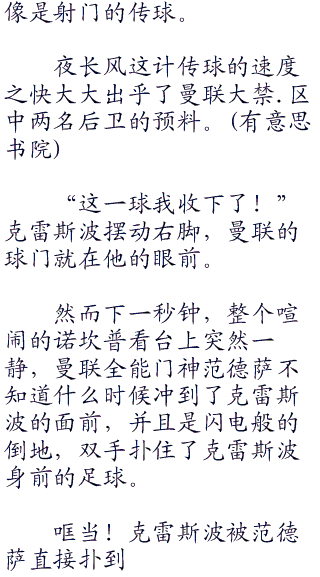 像是射门的传球。
夜长风这计传球的速度
之快大大出乎了曼联大禁.区
中两名后卫的预料。(有意思
书院)
“这一球我收下了！”
克雷斯波摆动右脚，曼联的
球门就在他的眼前。
然而下一秒钟，整个喧
闹的诺坎普看台上突然一
静，曼联全能门神范德萨不
知道什么时候冲到了克雷斯
波的面前，并且是闪电般的
倒地，双手扑住了克雷斯波
身前的足球。
哐当！克雷斯波被范德
萨直接扑到